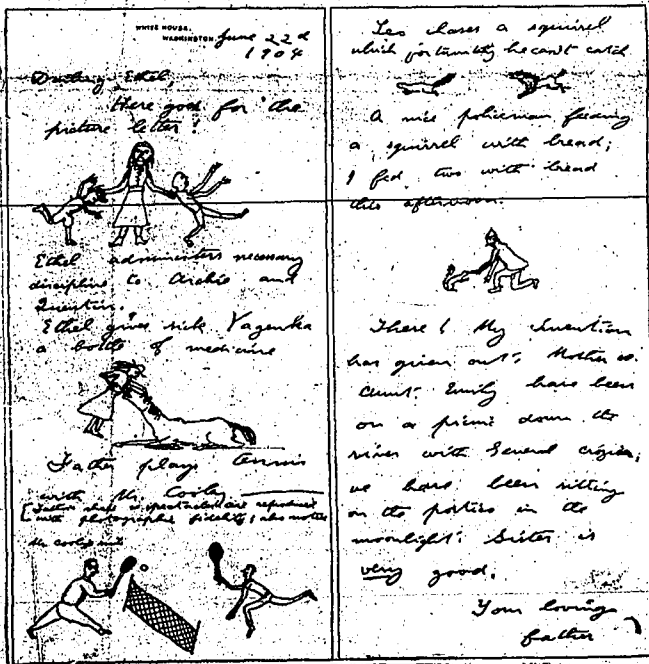 WHITE HOUSE,
WASHINGTON.
June 22d
1904
Darling Ethel,
Here goes for the
picture letter!
Ethel administers necessary
discipline to Archie and
Quentin.
Ethel gives sick Yagenka
a bottle of medicine
Father plays tennis
with Mr. Cooley
[Father's shape & spectacles are reproduced
with photographic fidelity; also notice
Mr Cooley's
Leo chases a squirrel
which fortunately he can't catch
A nice policeman feeding
a squirrel with bread;
I fed two with bread
this afternoon.
There! My invention
has given out. Mother &
Aunt Emily have been
on a picnic down the
river with General Crozier;
we have been sitting
on the portico in the
moonlight. Sister is
very good.
Your loving
father